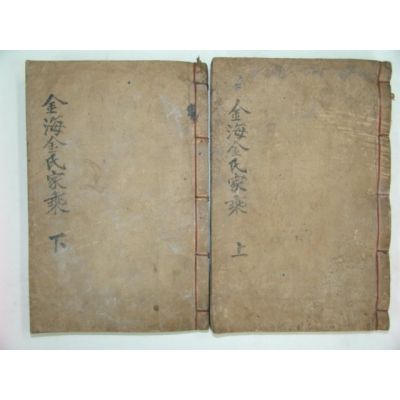 金海金氏家乘
上
金海金氏家乘
下